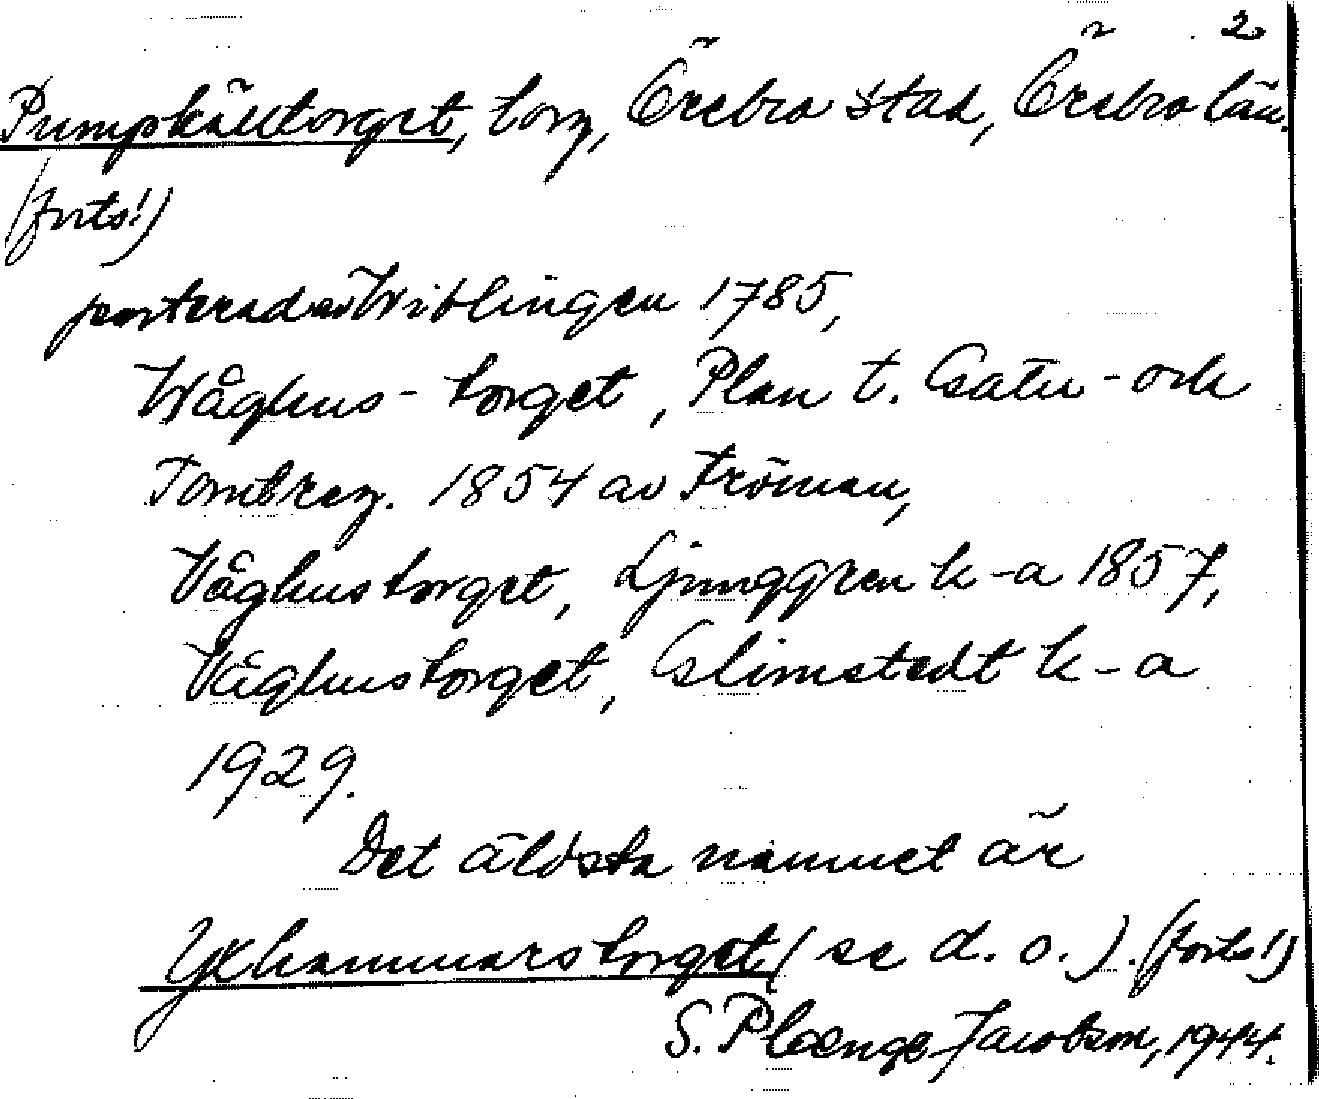 2
Pumpkälltorget, torg, Örebro stad, Örebro län.
(forts!)
porterad av Wiblingen 1785,
Wåghus-torget, Plan t. Gatu- och
Tombreg. 1854 av Fröman,
Våghustorget, Ljunggren k-a 1857,
Våghustorget, Glimstedt k-a
1929.
Det äldsta namnet är
Yxhammarstorget (se d. o.). (forts!)
S. Plœnge-Jacobson, 1944.